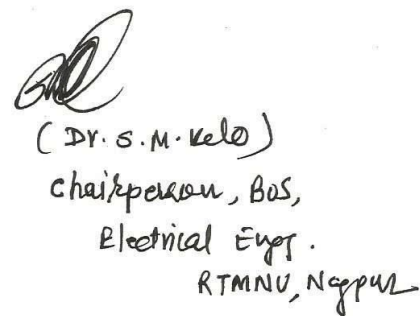 (Dr. S. M. Kelo)
Chairperson, BOS,
Electrical Engg.
RTMNU, Nagpur